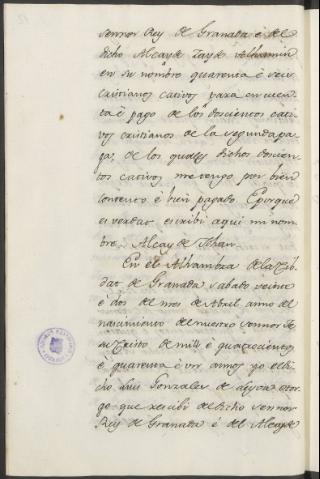 sennor Rey de Granada è del
dicho Alcayde Zayde Alhamin
en su nombre quarenta è seis
cristianos cativos para en cuen-
ta è pago de los doscientos cati-
vos cristianos de la segunda pa-
ga, de los quales dichos doscien-
tos cativos me tengo por bien
contento è bien pagado. E porque
es verdat escribi aqui mi nom-
bre. Alcayde
En el Alhambra de la Cib-
dat de Granada sabado veinte
è dos del mes de Abril anno del
nascimiento de nuestro sennor Je-
su Cristo de mill è quatrocientos
è quarenta è un annos yo el di-
cho Luis Gonzalez de otor-
go que rescibi del dicho sennor
Rey de Granada è del Alcayde